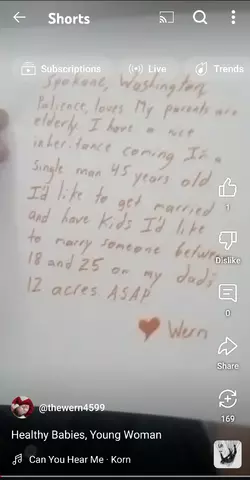 Shorts
Subscriptions
Live
Trends
Spokane, Washington
Patience, loves My parents are
elderly I have a nice
inheritance coming I'm a
single man 45 years old
I'd like to get married
and have kids I'd like
to marry someone betwe
18 and 25 on my dad's
12 acres ASAP
Wern
Dislike
Share
169
@thewern4599
Healthy Babies, Young Woman
Can You Hear Me · Korn